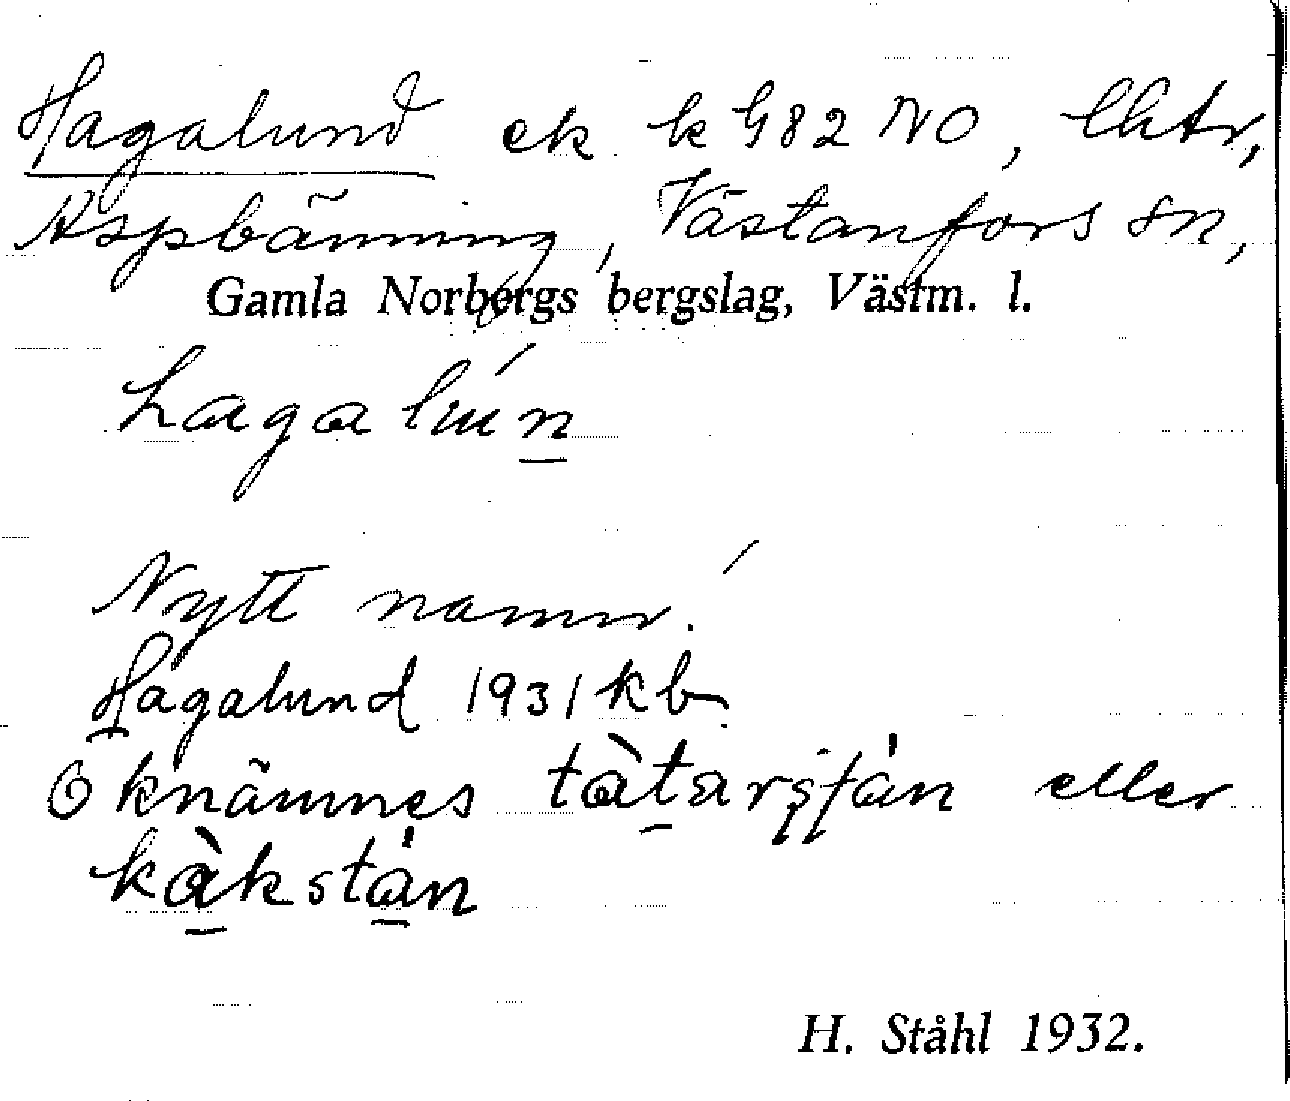 Hagalund ek k G82 NO, lhtr,
Aspbänning, Västanfors sn,
Gamla Norbergs bergslag, Västm. l.
hagaluń
Nytt namn.
Hagalund 1931 kb
Öknämnes tàtarsfán eller
kàkstán
H. Ståhl 1932.